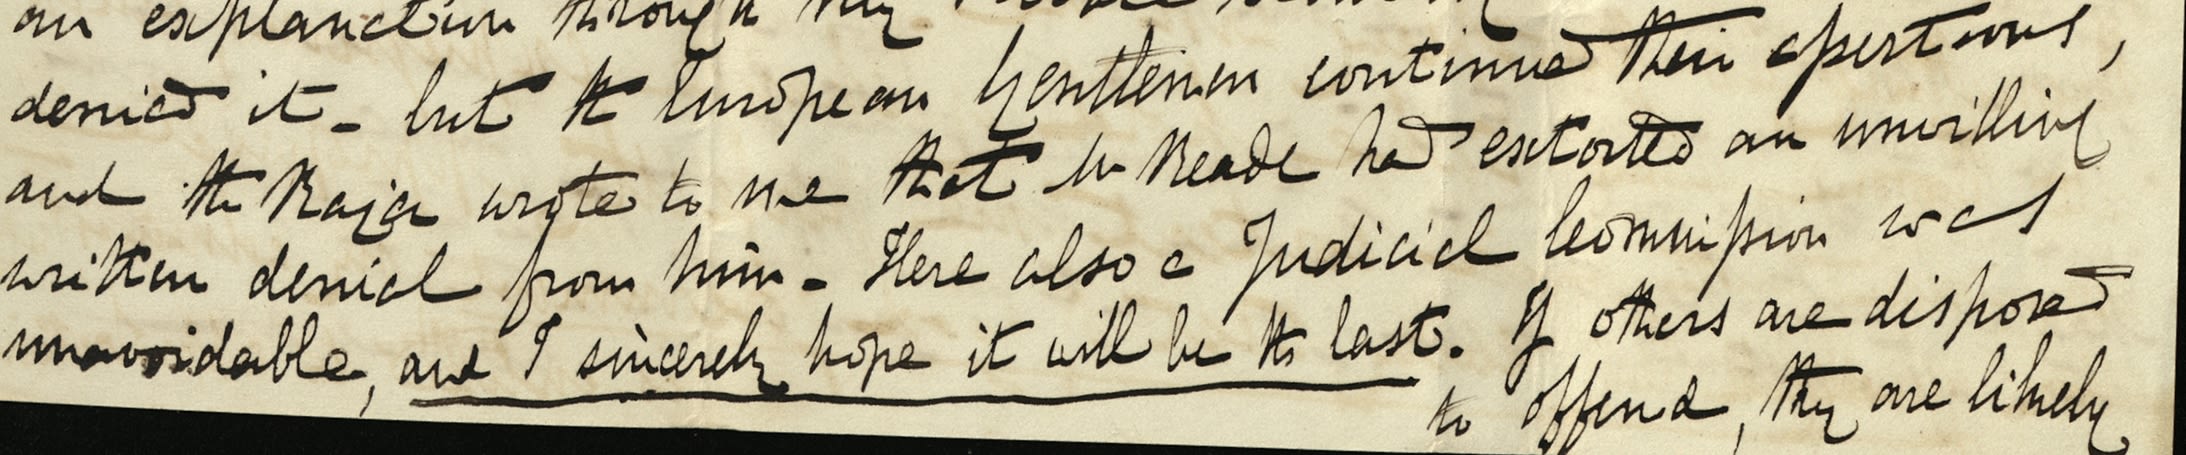 an explanation through my
denied it - but the European Gentlemen continued their assertions,
and the Raja wrote to me that Mr Reade had extorted an unwilling
written denial from him - Here also a Judicial Commission was
unavoidable, and I sincerely hope it will be the last. If others are disposed
to offend, they are likely